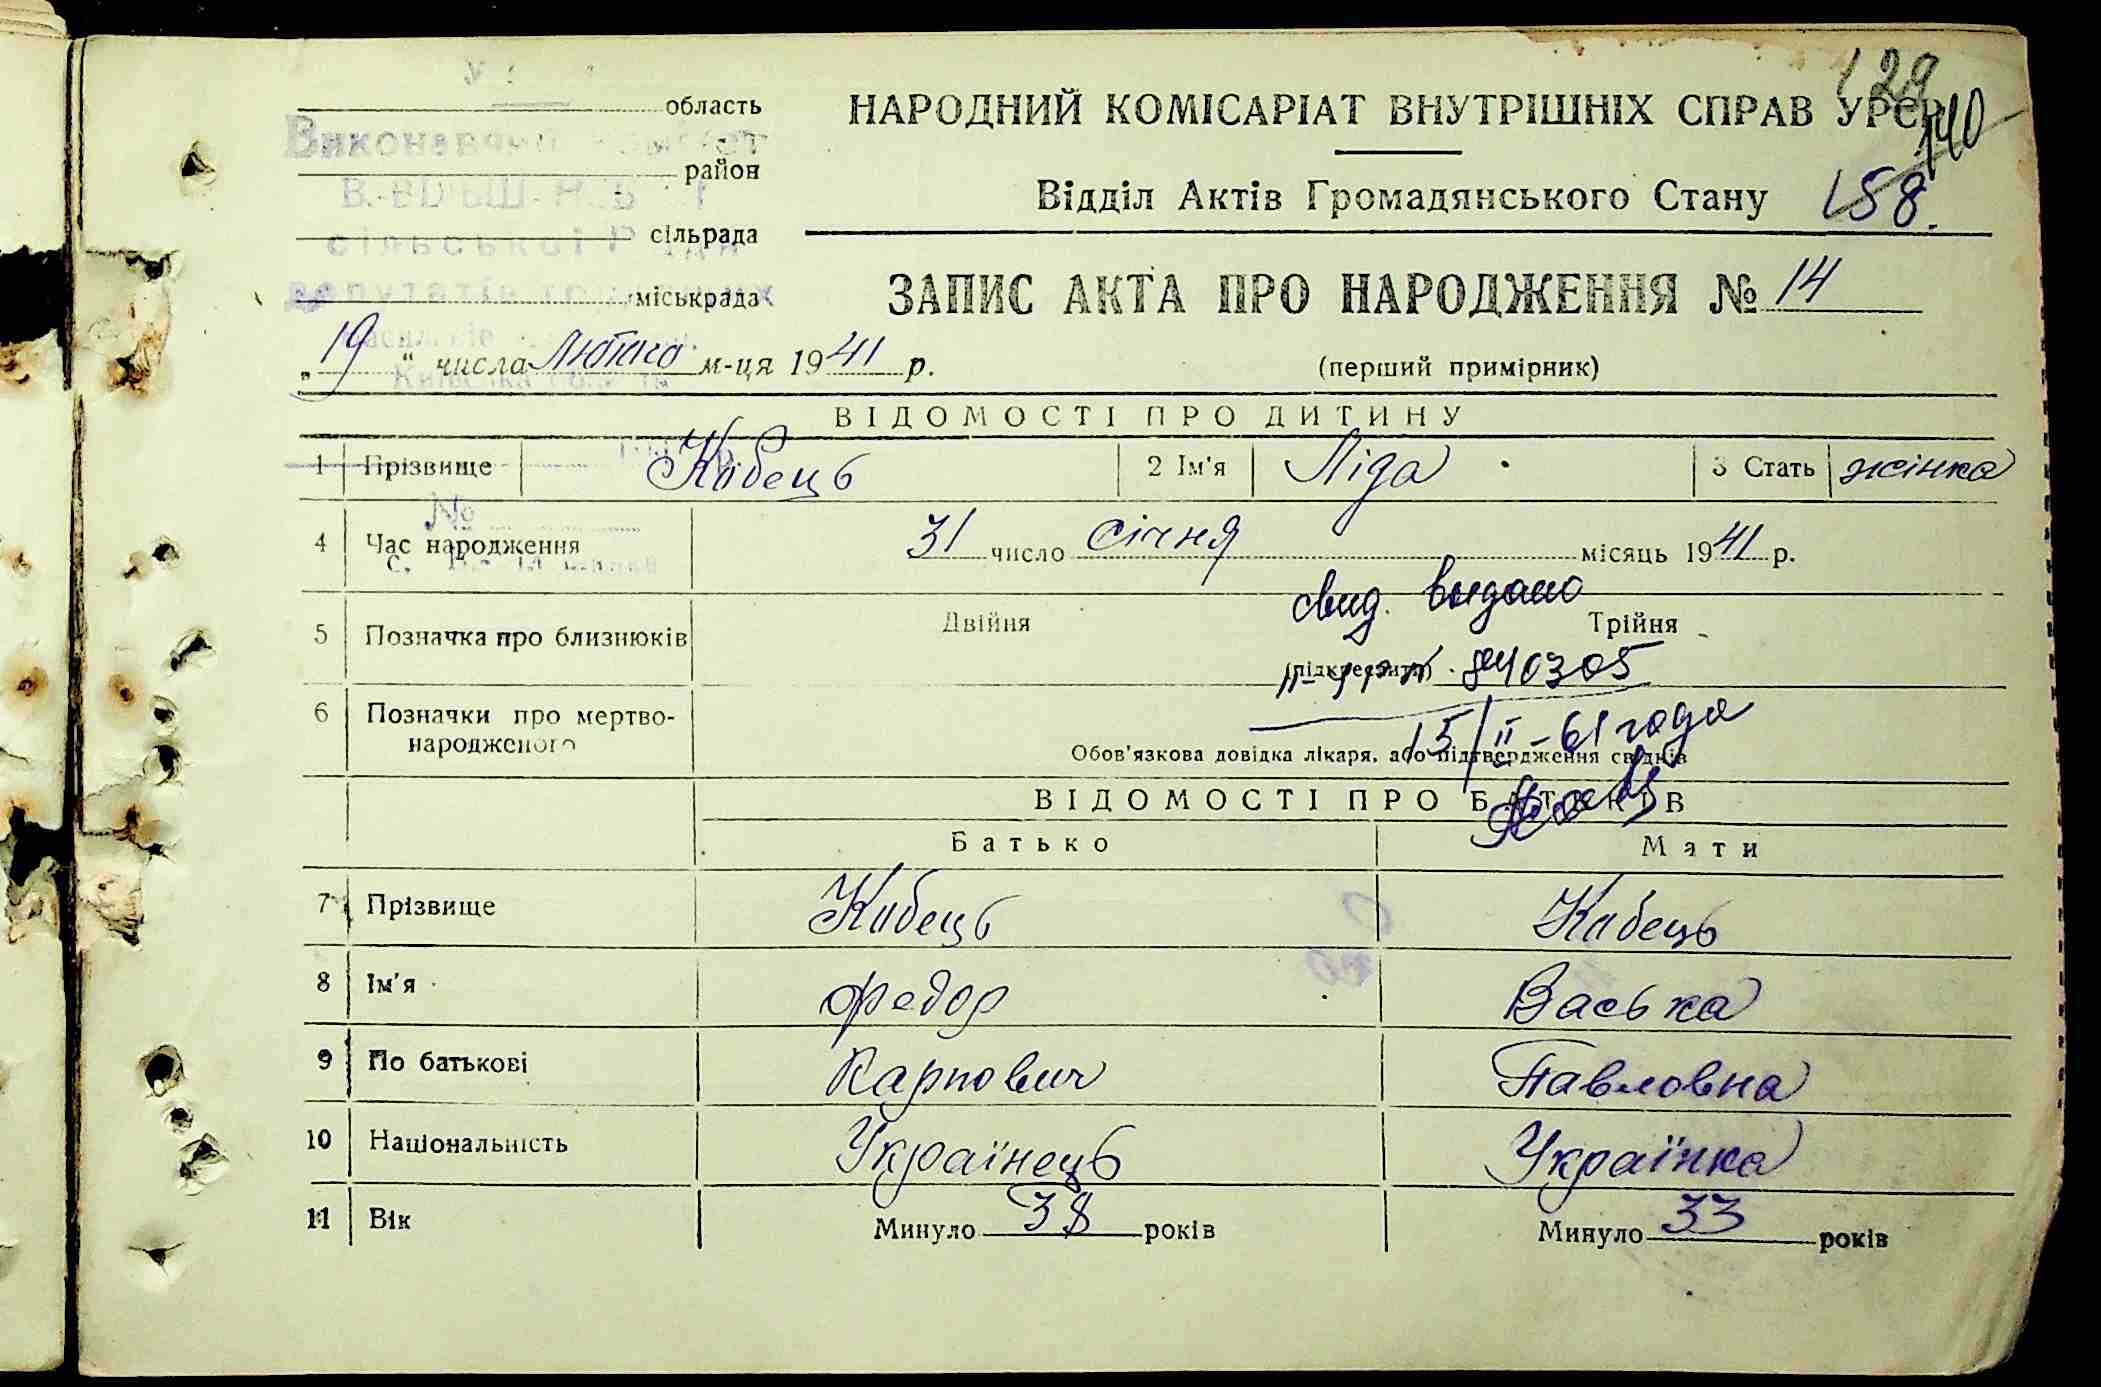 область
район
сільрада
міськрада
НАРОДНИЙ КОМІСАРІАТ ВНУТРІШНІХ СПРАВ УРСР
129
140
Відділ Актів Громадянського Стану
158.
ЗАПИС АКТА ПРО НАРОДЖЕННЯ № 14
„ 19 “ числа Лютого м-ця 1941 р.
(перший примірник)
ВІДОМОСТІ ПРО ДИТИНУ
1 Прізвище Кабець 2 Ім'я Ліда 3 Стать жінка
№
4 Час народження 31 число січня місяць 1941 р.
свид. выдано
5 Позначка про близнюків Двійня Трійня
(підкреслити) 840305
6 Позначки про мертво-
народженого
15/II-61 года
Обов'язкова довідка лікаря, або підтвердження свідків
ВІДОМОСТІ ПРО БАТЬКІВ
Батько Мати
7 Прізвище Кабець Кабець
8 Ім'я Федор Васька
9 По батькові Карпович Павловна
10 Національність Українець Українка
11 Вік Минуло 38 років Минуло 33 років